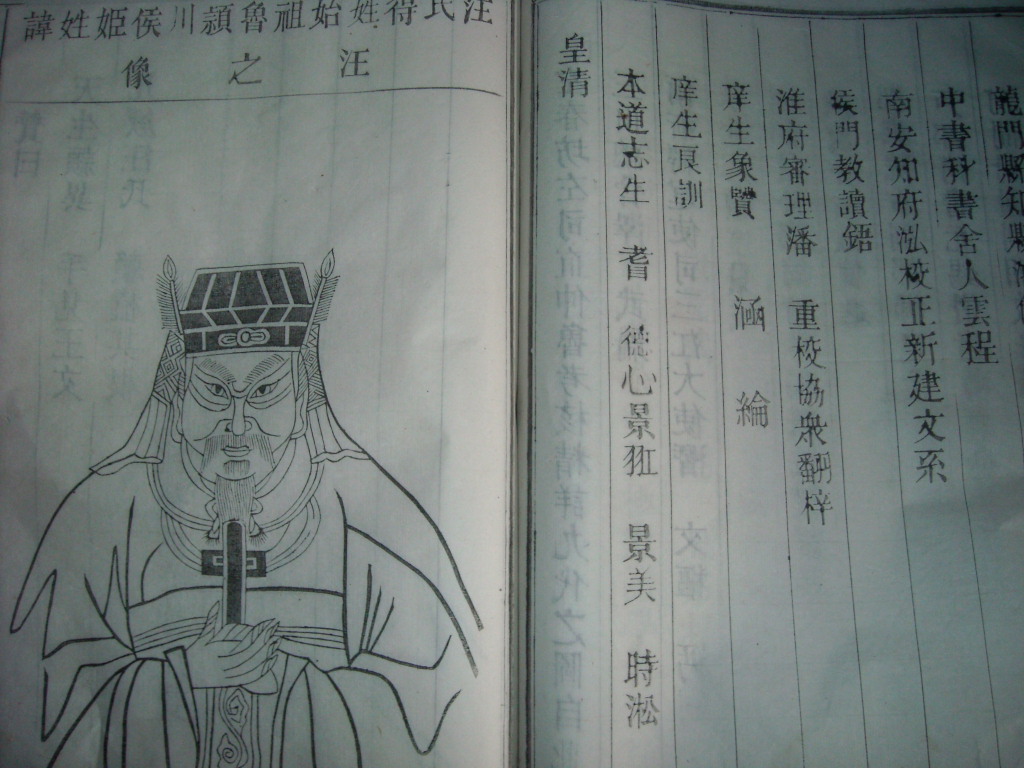 龍門縣知縣
中書科書舍人雲程
南安知府泓校正新建文系
教讀鋙
淮府審理潘 重校協衆翻梓
庠生象贊 涵 綸
庠生良訓
本道志生 耆 德心景 景美 時淞
皇清
汪氏得姓始祖魯潁川侯姬姓諱
汪之像